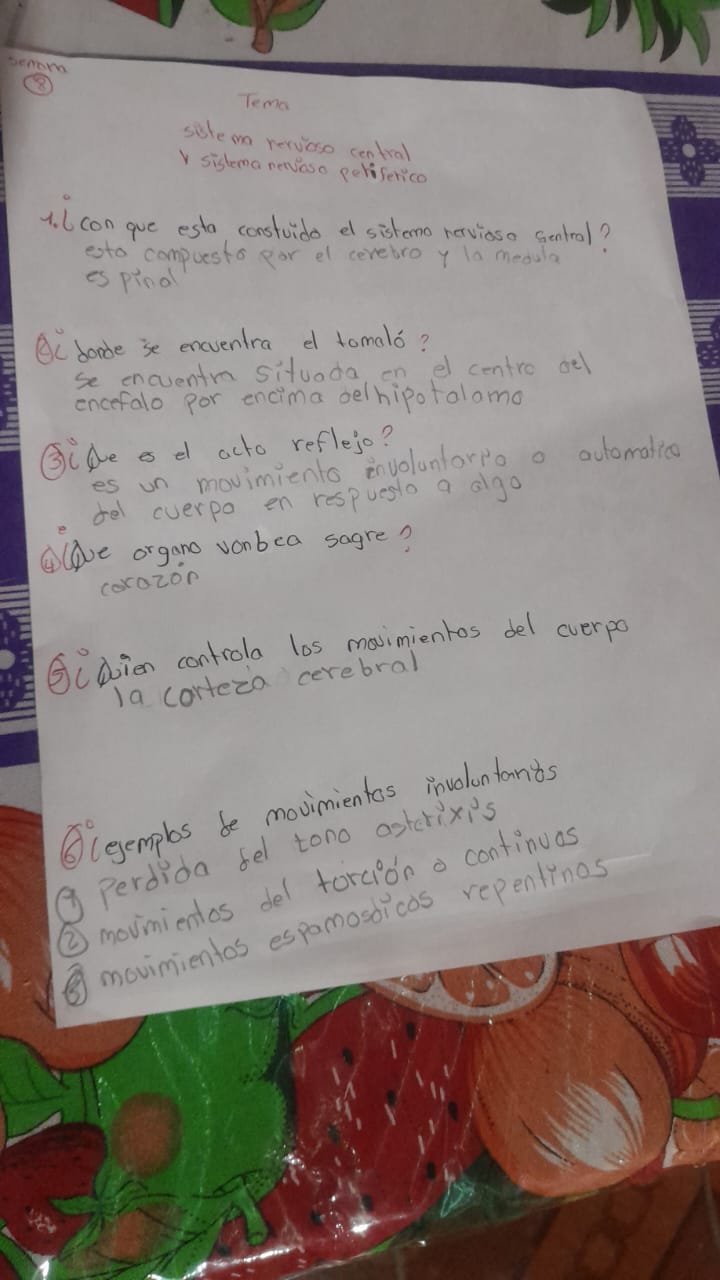 Semana
8
Tema
sistema nervioso central
y sistema nervioso periferico
1.¿con que esta constuido el sistema nervioso sentral?
esta compuesto por el cerebro y la medula
espinal
2¿donde se encuentra el tomaló?
se encuentra situada en el centro del
encefalo por encima del hipotalamo
3¿Que es el acto reflejo?
es un movimiento involuntario o automatico
del cuerpo en respuesta a algo
4¿Que organo vonbea sagre?
corazón
5¿Quien controla los movimientos del cuerpo
la corteza cerebral
6¿egemplos de movimientos involuntarios
1 perdida del tono asterixis
2 movimientos del torción o continuos
3 movimientos espamosdicos repentinos